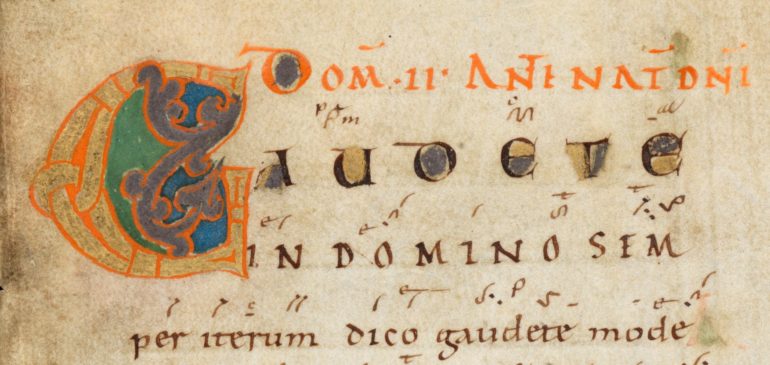 DOM̄·II· ANTE NAT̄ DN̄I
GAUDETE
IN DOMINO SEM
per iterum dico gaudete mode